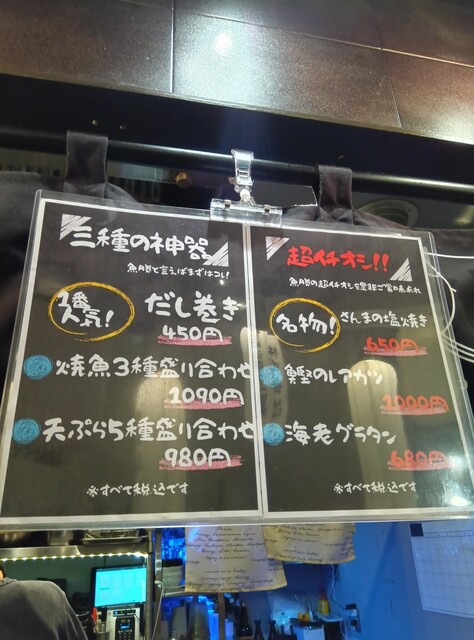 三種の神器
魚勝と言えばまずはコレ!
1番人気!
だし巻き
450円
焼魚3種盛り合わせ
1090円
天ぷら5種盛り合わせ
980円
※すべて税込です
超イチオシ!!
魚勝の超イチオシを是非ご賞味あれ
名物!
さんまの塩焼き
650円
鰹のレアカツ
1000円
海老グラタン
680円
※すべて税込です